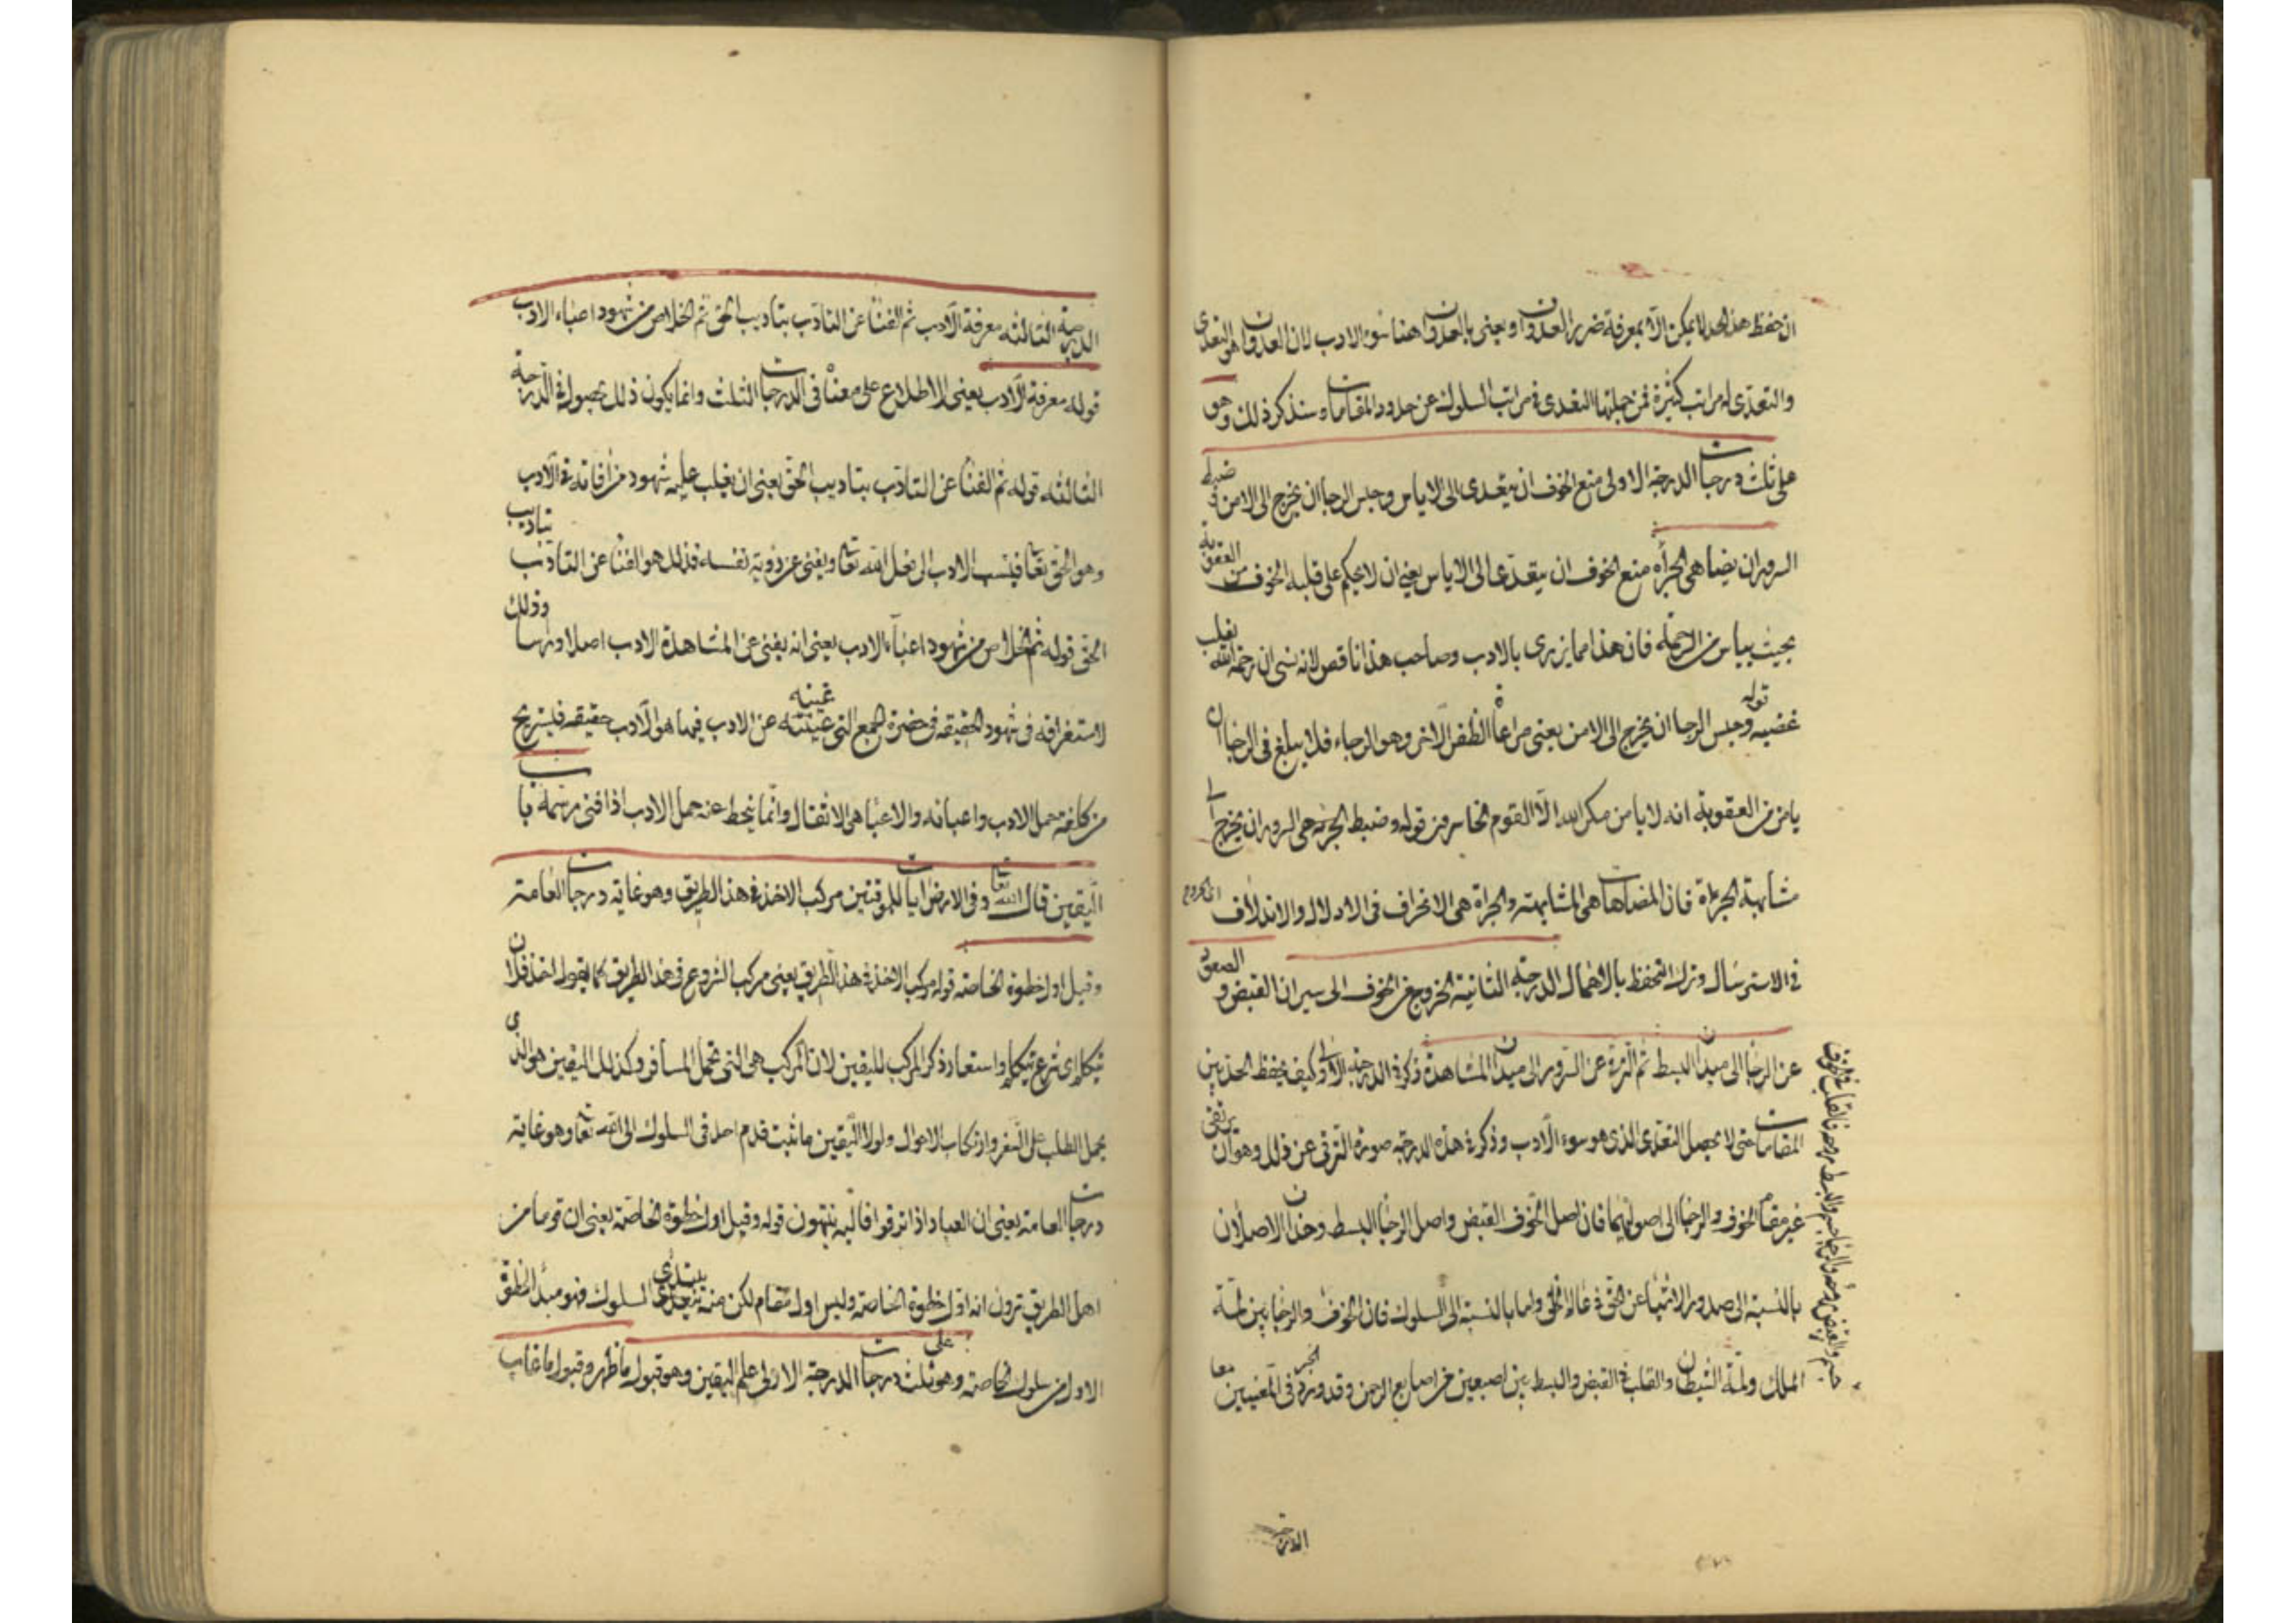 ان حفظ هذا الحد لا يمكن الا بمعرفة ضرر العدوان ويعنى بالعدوان هنا سوء الادب لان العدوان هو التعدى
والتعدى له مراتب كثيرة فمن جملتها التعدى فى مراتب السلوك عن حدود المقامات وسنذكر ذلك وهو
على ثلث درجات الدرجة الاولى منع الخوف ان يتعدى الى الاياس وحبس الرجا ان يخرج الى الامن وضبط
السرور ان يضاهى الجرأة منع الخوف ان يتعدى الى الاياس يعنى ان لا يحكم على قلبه الخوف من العقوبة
بحيث ييأس من الرحمة فان هذا مما يزرى بالادب وصاحب هذا ناقص لانه نسى ان رحمة الله يغلب
غضبه قوله وحبس الرجا ان يخرج الى الامن يعنى مراعاة الطرف الاخر وهو الرجاء فلا يبلغ فى الرجا ان
يامن من العقوبة انه لا يامن مكر الله الا القوم الخاسرون قوله وضبط الجرءة هى السرور ان يخرج الى
مشابهة الجرءة فان المضاهات هى المشابهة والجراة هى الانخراف فى الادلال والاندلاف
فى الاسترسال وترك التحفظ بالاهمال الدرجة الثانية الخروج من الخوف الى سيران القبض والصعود
عن الرجا الى ميدان البسط ثم الترقى عن السرور الى ميدان المشاهدة ذكر فى الدرجة الاولى كيف يحفظ الحد بين
المقامات حتى لا يحصل التعدى الذى هو سوء الادب وذكر فى هذه الدرجة صورة الترقى عن ذلك وهو ان يرتقى
عن مقام الخوف والرجا الى اصولهما فان اصل الخوف القبض واصل الرجا البسط وهذان الاصلان
بالنسبة الى صدور الاشيا عن الحق فى عالم الخلق واما بالنسبة الى السلوك فان الخوف والرجا بين لمة
الملك ولمة الشيطان والقلب فى القبض والبسط بين اصبعين من اصابع الرحمن وقد ورد الخبر فى المعنيين معا
الدرجة
الدرجة الثالثه معرفة الادب ثم الفنا عن التادب بتاديب الحق ثم الخلاص من شهود اعباء الادب
قوله معرفة الادب يعنى الاطلاع على معناه فى الدرجات الثلث وانما يكون ذلك بحصوله فى الدرجة
الثالثه قوله ثم الفنا عن التادب بتاديب الحق يعنى ان يغلب عليه شهود من اقامه فى الادب
وهو الحق تعا فينسب الادب الى فعل الله تعا ويفنى عن روية نفسه فذلك هو الفنا عن التادب بتاديب
الحق قوله ثم الخلاص من شهود اعباء الادب يعنى انه يفنى عن المشاهدة الادب اصلا وراسا وذلك
لاستغراقه فى شهود الحقيقه فى حضرة الجمع التى غيبته عن الادب فيها هو الادب حقيقه فيستريح
من كلفة حمل الادب واعبائه والاعبا هى الاثقال وانما ينحط عنه حمل الادب اذا فنى رسمه باب
اليقين قال الله تعا وفى الارض ايات للموقنين مركب الاخذ فى هذا الطريق وهو غاية درجات العامة
وقيل اول خطوة الخاصة قوله مركب الاخذ فى هذا الطريق يعنى مركب الشروع فى هذا الطريق كما يقول اخذ فلان
يتكلم اى شرع يتكلم واستعار ذكر المركب لليقين لان المركب هى التى تحمل المسافر وكذلك اليقين هو الذى
يحمل الطلب على السفر وارتكاب الاهوال ولولا اليقين ما ثبت قدم احد فى السلوك الى الله تعا وهو غاية
درجات العامة يعنى ان العباد اذا ترقوا فاليه ينتهون قوله وقيل اول خطوة الخاصة يعنى ان قوما من
اهل الطريق يرون انه اول خطوة الخاصة وليس اول مقام لكن منه يبتدى السلوك فهو مبدا الخلق
الاول من سلوك الخاصة وهو على ثلث درجات الدرجة الاولى علم اليقين وهو قبول ما ظهر وقبول ما غاب